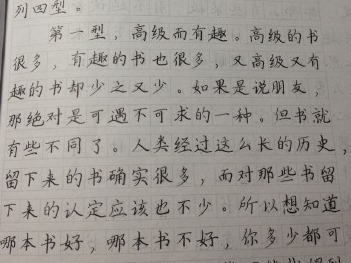 列四型。
第一型，高级而有趣。高级的书
很多，有趣的书也很多，又高级又有
趣的书却少之又少。如果是说朋友，
那绝对是可遇不可求的一种。但书就
有些不同了。人类经过这么长的历史，
留下来的书确实很多，而对那些书留
下来的认定应该也不少。所以想知道
哪本书好，哪本书不好，你多少都可